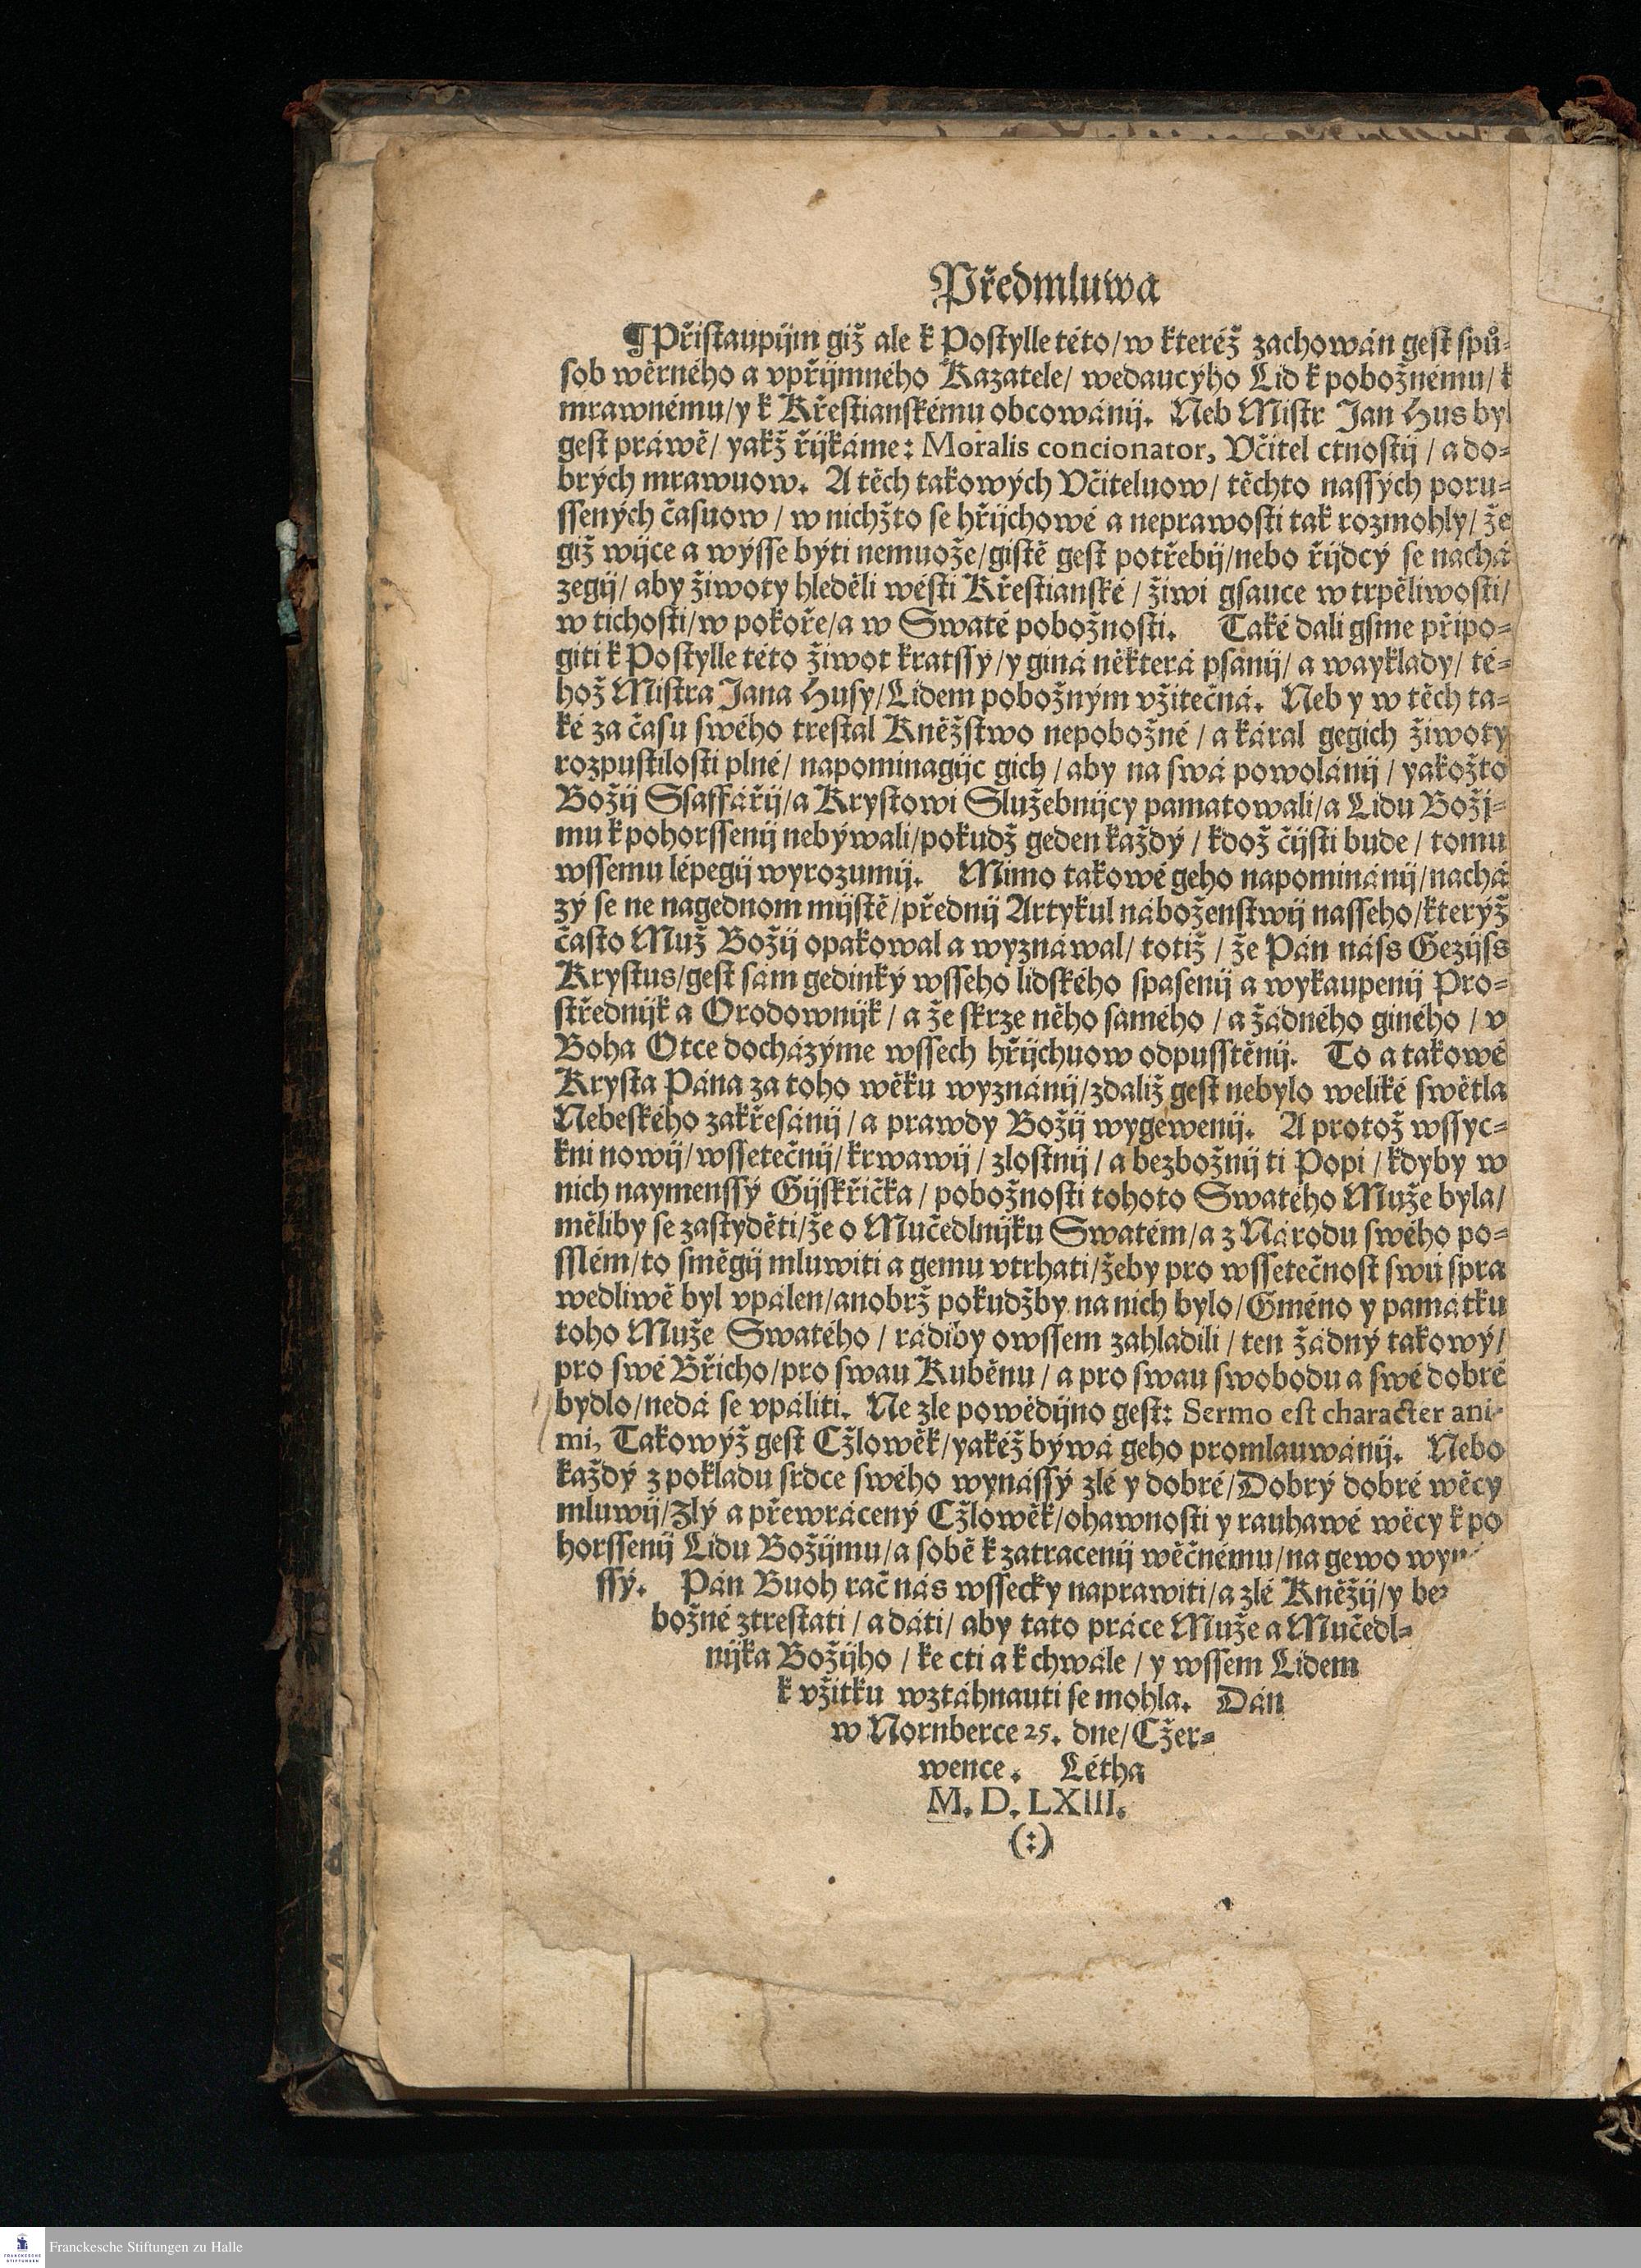 Předmluwa
¶Přistaupijm giž ale k Postylle této/w kteréž zachowán gest spů⸗
sob wěrného a vpřijmného Kazatele/ wedaucýho Lid k pobožnému/ k
mrawnému/y k Křestianskému obcowánij. Neb Mistr Jan Hus byl
gest práwě/ yakž řijkáme: Moralis concionator, Včitel ctnostij / a do⸗
brých mrawuow. A těch takowých Včiteluow/ těchto nassých poru⸗
ssených časuow / w nichžto se hřijchowé a neprawosti tak rozmohly/ že
giž wijce a wýsse býti nemuože/gistě gest potřebij/nebo řijdcý se nachá
zegij/ aby žiwoty hleděli wésti Křestianské / žiwi gsauce w trpěliwosti/
w tichosti/w pokoře/a w Swaté pobožnosti. Také dali gsme připo⸗
giti k Postylle této žiwot kratssý/y giná některá psánij/ a wayklady/ té⸗
hož Mistra Jana Husy/Lidem pobožným vžitečná. Neb y w těch ta⸗
ké za času swého trestal Kněžstwo nepobožné / a káral gegich žiwoty
rozpustilosti plné/ napominagijc gich / aby na swá powolánij / yakožto
Božij Ssaffářij/a Krystowi Služebnijcy pamatowali/a Lidu Božj⸗
mu k pohorssenij nebýwali/pokudž geden každý / kdož čijsti bude / tomu
wssemu lépegij wyrozumij. Mimo takowé geho napominánij/nachá
zý se ne nagednom mijstě/přednij Artykul náboženstwij nasseho/kterýž
často Muž Božij opakowal a wyznáwal/ totiž / že Pán náss Gezijss
Krystus/gest sám gedinký wsseho lidského spasenij a wykaupenij Pro⸗
střednijk a Orodownijk / a že skrze něho samého / a žádného giného / v
Boha Otce docházýme wssech hřijchuow odpusstěnij. To a takowé
Krysta Pána za toho wěku wyznánij/zdaliž gest nebylo weliké swětla
Nebeského zakřesánij / a prawdy Božij wygewenij. A protož wssyc⸗
kni nowij/wssetečnij/krwawij / zlostnij / a bezbožnij ti Popi / kdyby w
nich naymenssý Gijskřička / pobožnosti tohoto Swatého Muže byla/
měliby se zastyděti/že o Mučedlnijku Swatém/a z Národu swého po⸗
sslém/to smēgij mluwiti a gemu vtrhati/žeby pro wssetečnost swú spra
wedliwě byl vpálen/anobrž pokudžby na nich bylo/Gméno y památku
toho Muže Swatého / rádiby owssem zahladili / ten žádný takowý/
pro swé Břicho/pro swau Kuběnu / a pro swau swobodu a swé dobré
bydlo/nedá se vpáliti. Ne zle powědijno gest: Sermo est character ani⸗
mi, Takowýž gest Cžlowěk/yakéž býwá geho promlauwánij. Nebo
každý z pokladu srdce swého wynássý zlé y dobré/Dobrý dobré wěcy
mluwij/Zlý a přewrácený Cžlowěk/ohawnosti y rauhawé wěcy k po
horssenij Lidu Božijmu/a sobě k zatracenij wěčnému/na gewo
ssý. Pán Buoh rač nás wssecky naprawiti/a zlé Kněžij/y bez
božné ztrestati / a dáti/ aby tato práce Muže a Mučedl⸗
nijka Božijho / ke cti a k chwále / y wssem Lidem
k vžitku wztáhnauti se mohla. Dán
w Nornberce 25. dne/ Cžer⸗
wence. Létha
M. D. LXIII.
(:)
Franckesche Stiftungen zu Halle
FRANCKESCHE
STIFTUNGEN